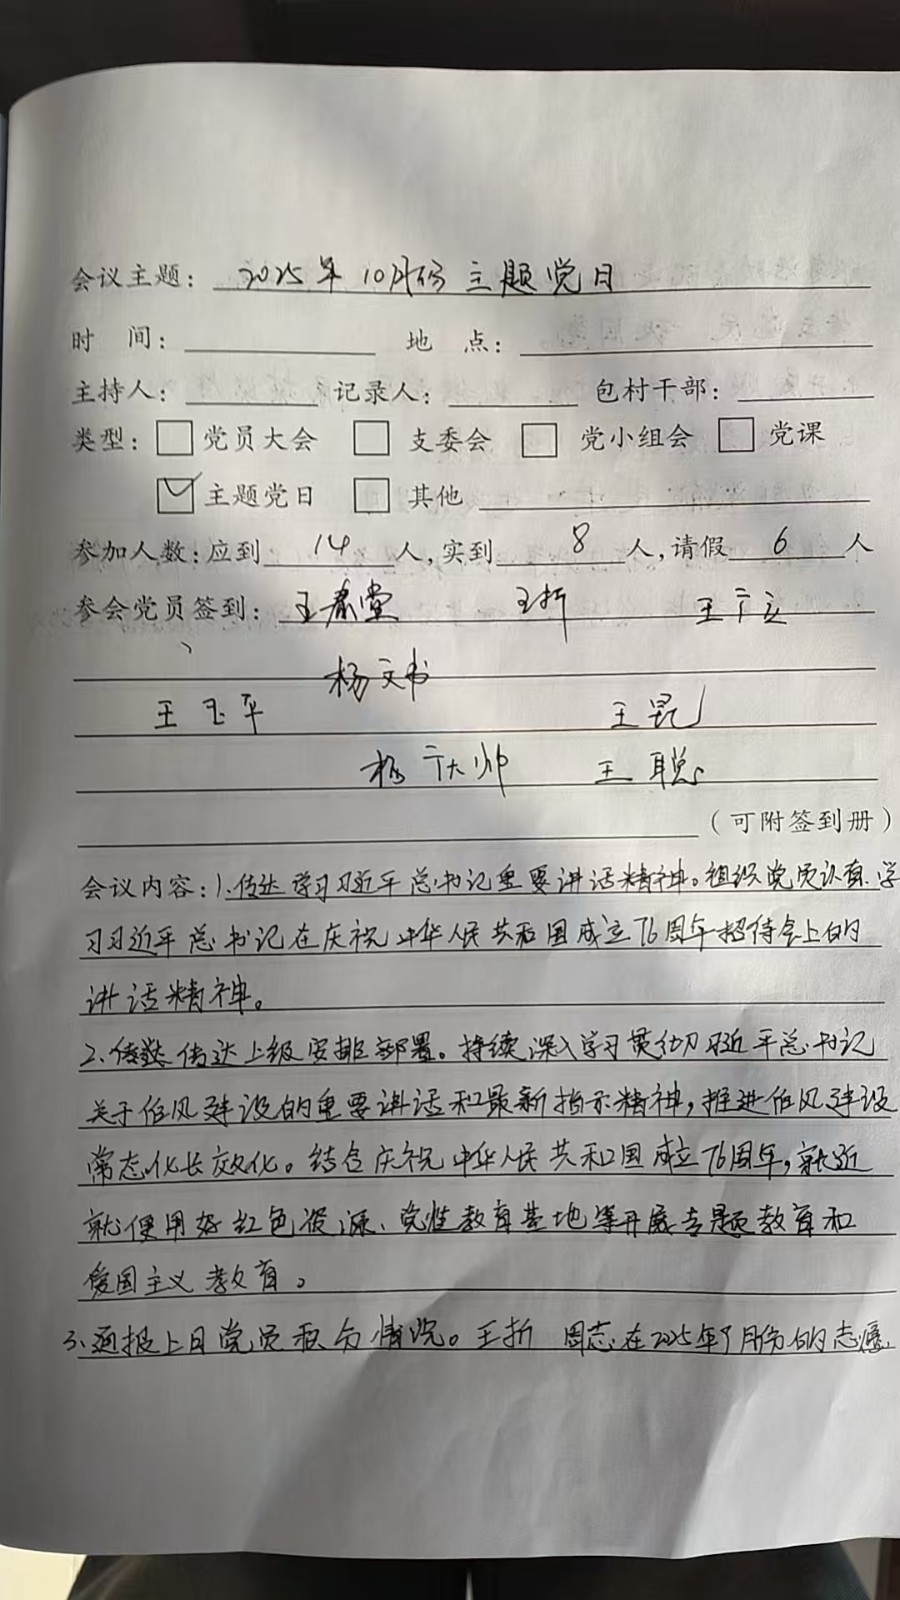 会议主题：2025年10月份主题党日
时 间： 地 点：
主持人： 记录人： 包村干部：
类型：□党员大会 □支委会 □党小组会 □党课
☑主题党日 □其他
参加人数：应到 14 人，实到 8 人，请假 6 人
参会党员签到：王春堂 王折 王广立
杨文书
王玉平 王昆
杨庆帅 王聪
（可附签到册）
会议内容：1、传达学习习近平总书记重要讲话精神。组织党员认真学
习习近平总书记在庆祝中华人民共和国成立76周年招待会上的
讲话精神。
2、传达上级安排部署。持续深入学习贯彻习近平总书记
关于作风建设的重要讲话和最新指示精神，推进作风建设
常态化长效化。结合庆祝中华人民共和国成立76周年，就近
就便用好红色资源、党性教育基地等开展专题教育和
爱国主义教育。
3、通报上月党员积分情况。王折 同志在2025年9月份的志愿